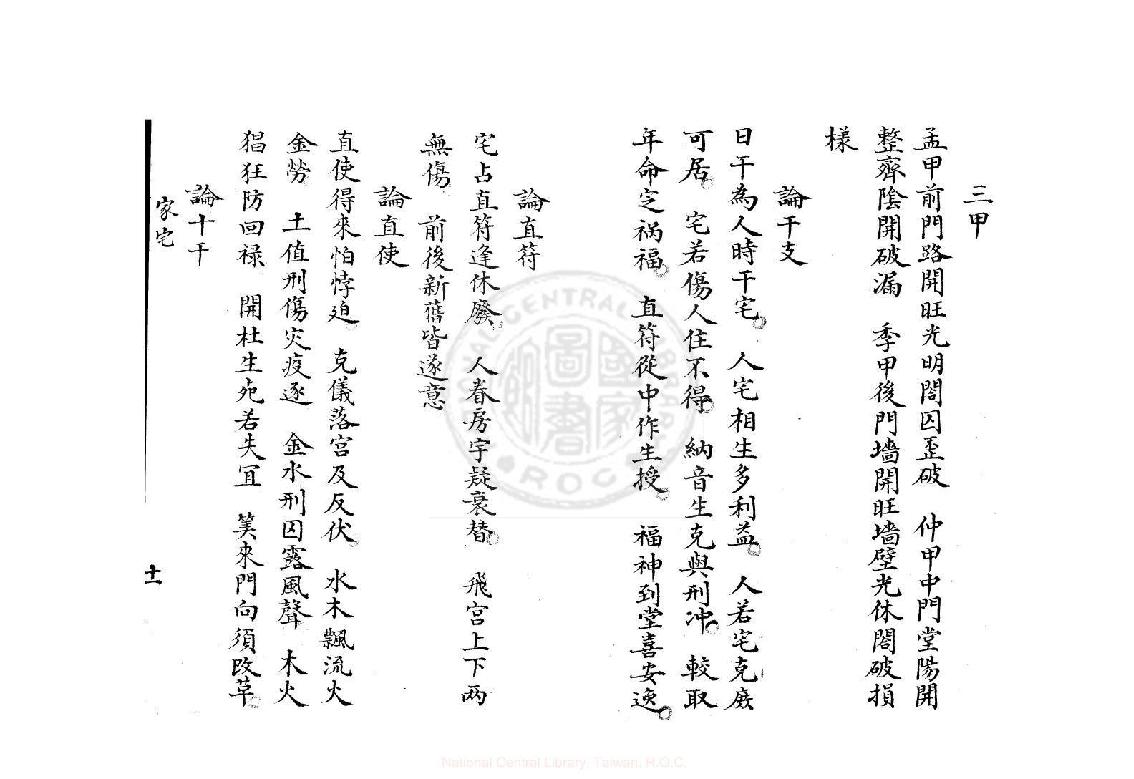 三甲
孟甲前門路開旺光明閤囚歪破　仲甲中門堂陽開
整齊陰開破漏　季甲後門墻開旺墻壁光休閤破損
樣
論干支
日干為人時干宅。人宅相生多利益。人若宅克底
可居。宅若傷人住不得。納音生克與刑冲。較取
年命定禍福。直符從中作生授。福神到堂喜安逸。
論直符
宅占直符逢休廢。人眷房宇疑衰替。飛宮上下两
無傷。前後新舊皆遂意
論直使
直使得來怕悖迫。克儀落宮及反伏。水木飄流火
金勞　土值刑傷灾疫逐　金水刑囚露風聲　木火
猖狂防回禄　開杜生宛若失冝　美來門向須改革。
論十干
家宅
十一
NATIONAL CENTRAL LIBRARY
R.O.C.
國家圖書館
National Central Library, Taiwan, R.O.C.